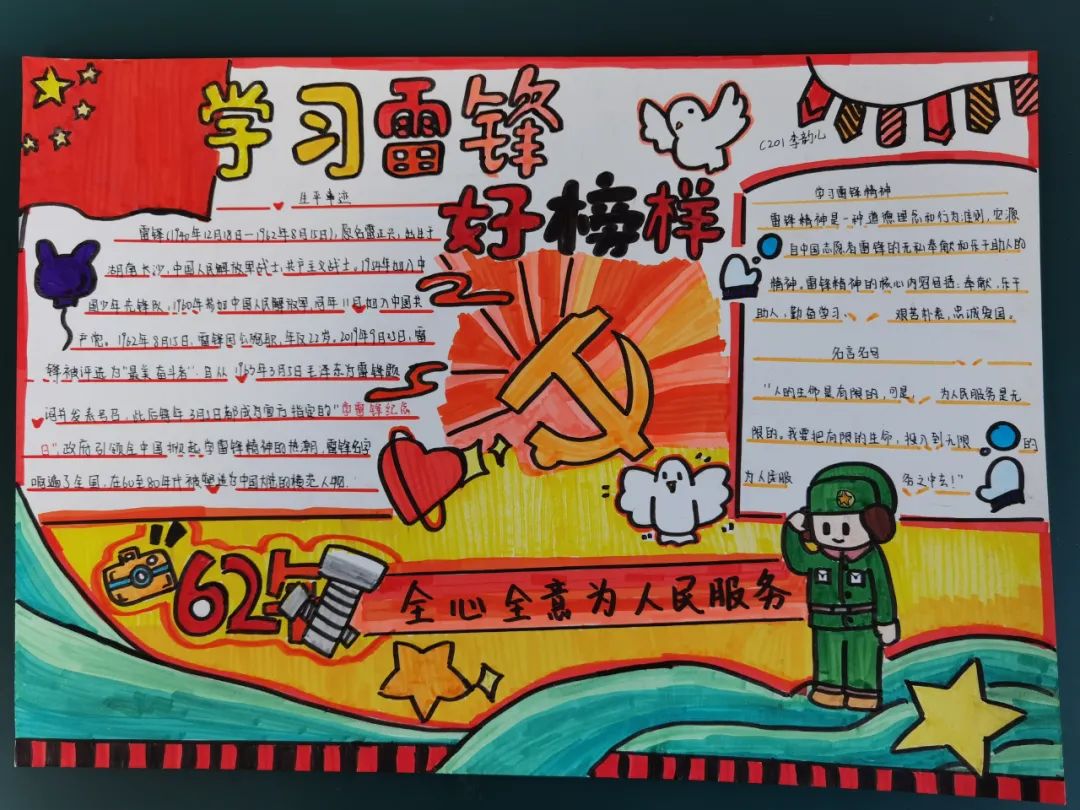 学习雷锋
好榜样
C201 李韵儿
生平事迹
雷锋(1940年12月18日—1962年8月15日),原名雷正兴,出生于
湖南长沙,中国人民解放军战士,共产主义战士。1954年加入中
国少年先锋队,1960年参加中国人民解放军,同年11月加入中国共
产党。1962年8月15日,雷锋因公殉职,年仅22岁。2019年9月25日,雷
锋被评选为"最美奋斗者".自从1963年3月5日毛泽东为雷锋题
词并发表号召,此后每年3月 日都成为官方指定的"学雷锋纪念
日",政府引领全中国掀起学雷锋精神的热潮,雷锋名字
响遍了全国,在60至80年代被塑造为中国大陆的模范人物.
学习雷锋精神
雷锋精神是一种道德理念和行为准则,它源
自中国志愿者雷锋的无私奉献和乐于助人的
精神。雷锋精神的核心内容包括:奉献,乐于
助人,勤奋学习、艰苦朴素,忠诚爱国。
名言名句
"人的生命是有限的,可是,为人民服务是无
限的。我要把有限的生命,投入到无限的
为人民服务之中去!"
62年
全心全意为人民服务